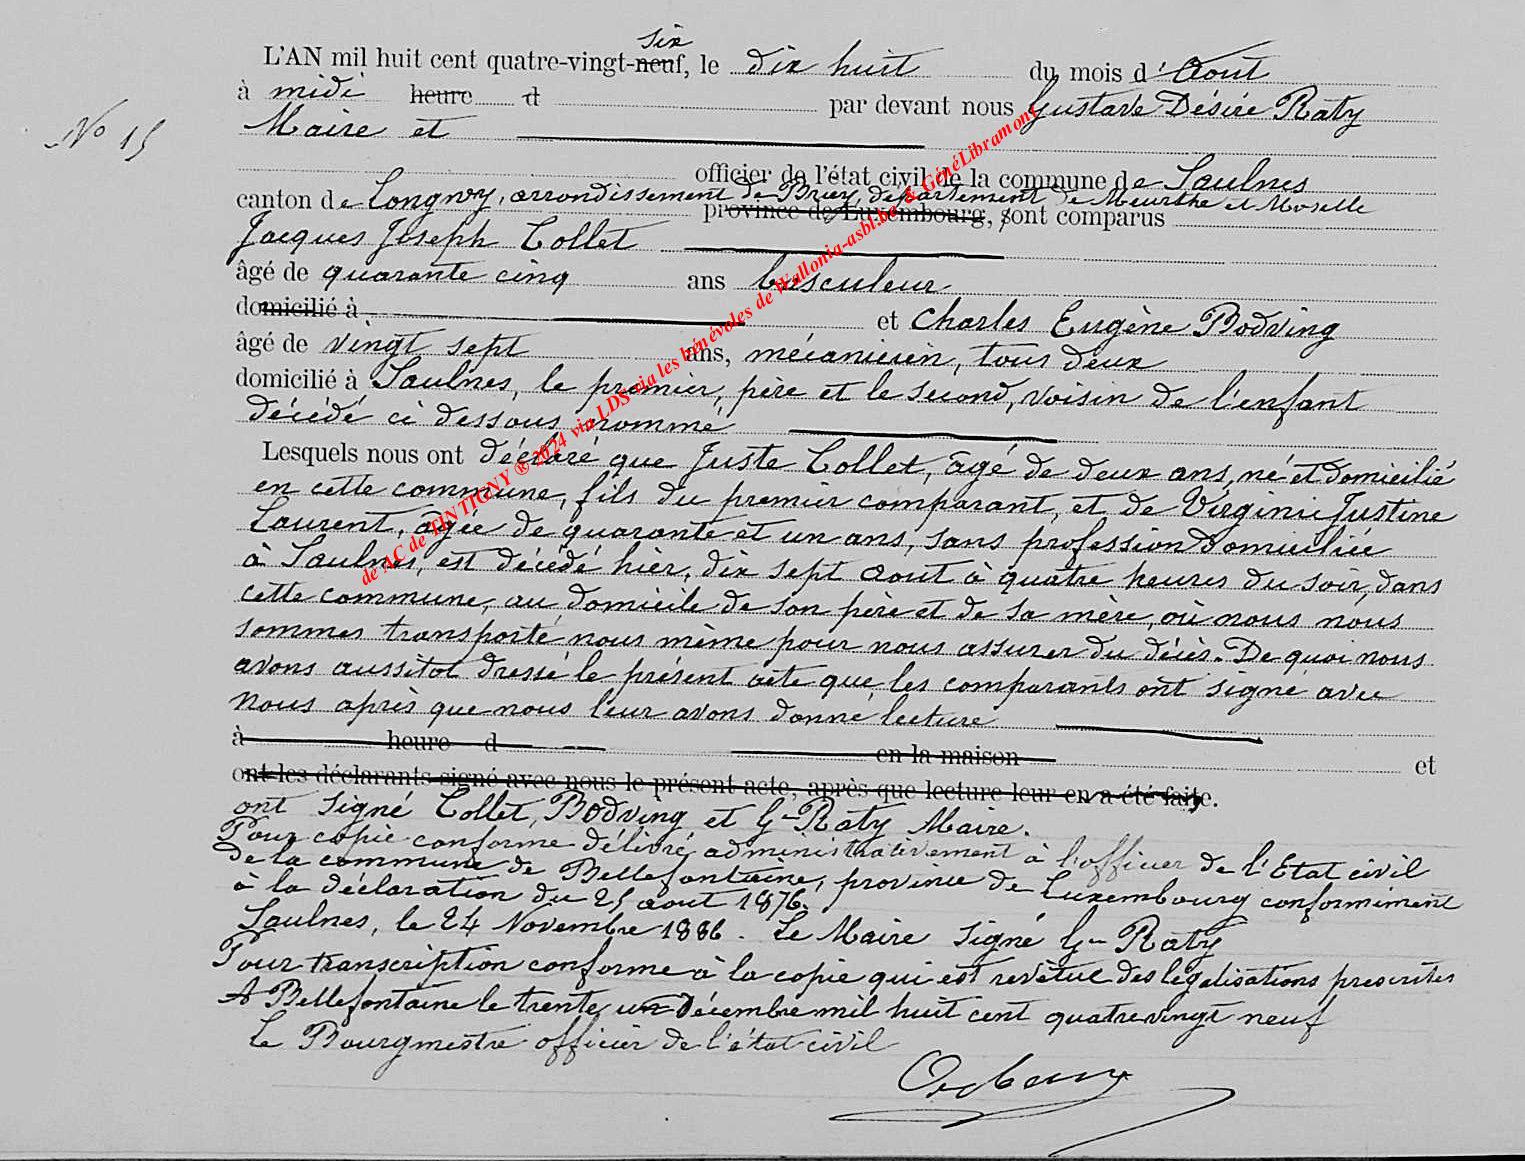 six
L'AN mil huit cent quatre-vingt-neuf, le dix huit du mois d'Aout
à midi heure d par devant nous Gustave Désiré Raty
N° 15
Maire et
officier de l'état civil de la commune de Saulnes
canton de Longwy, arrondissement de Briey, département de Meurthe et Moselle
province de Luxembourg, sont comparus
Jacques Joseph Collet
âgé de quarante cinq ans basculeur
domicilié à et Charles Eugène Bodving
âgé de vingt sept ans, mécanicien, tous deux
domicilié à Saulnes, le premier, père et le second, voisin de l'enfant
décédé ci dessous nommé
Lesquels nous ont déclaré que Juste Collet, âgé de deux ans, né et domicilié
en cette commune, fils du premier comparant, et de Virginie Justine
Laurent, âgée de quarante et un ans, sans profession domiciliée
à Saulnes, est décédé hier, dix sept aout à quatre heures du soir, dans
cette commune, au domicile de son père et de sa mère, où nous nous
sommes transporté nous même pour nous assurer du décès. De quoi nous
avons aussitot dressé le présent acte que les comparants ont signé avec
nous après que nous leur avons donné lecture
à heure d en la maison et
ont les déclarants signé avec nous le présent acte, après que lecture leur en a été faite.
ont signé Collet, Bodving et G. Raty Maire.
Pour copie conforme délivré administrativement à l'officier de l'Etat civil
de la commune de Bellefontaine, province de Luxembourg conformément
à la déclaration du 25 aout 1876.
Saulnes, le 24 Novembre 1886. Le Maire signé G. Raty
Pour transcription conforme à la copie qui est revêtue des légalisations prescrites
A Bellefontaine le trente un Décembre mil huit cent quatre vingt neuf
Le Bourgmestre officier de l'état civil
de AC de TINTIGNY ® 2024 via LDS via les bénévoles de Wallonia-asbl.be & GénéLibramont